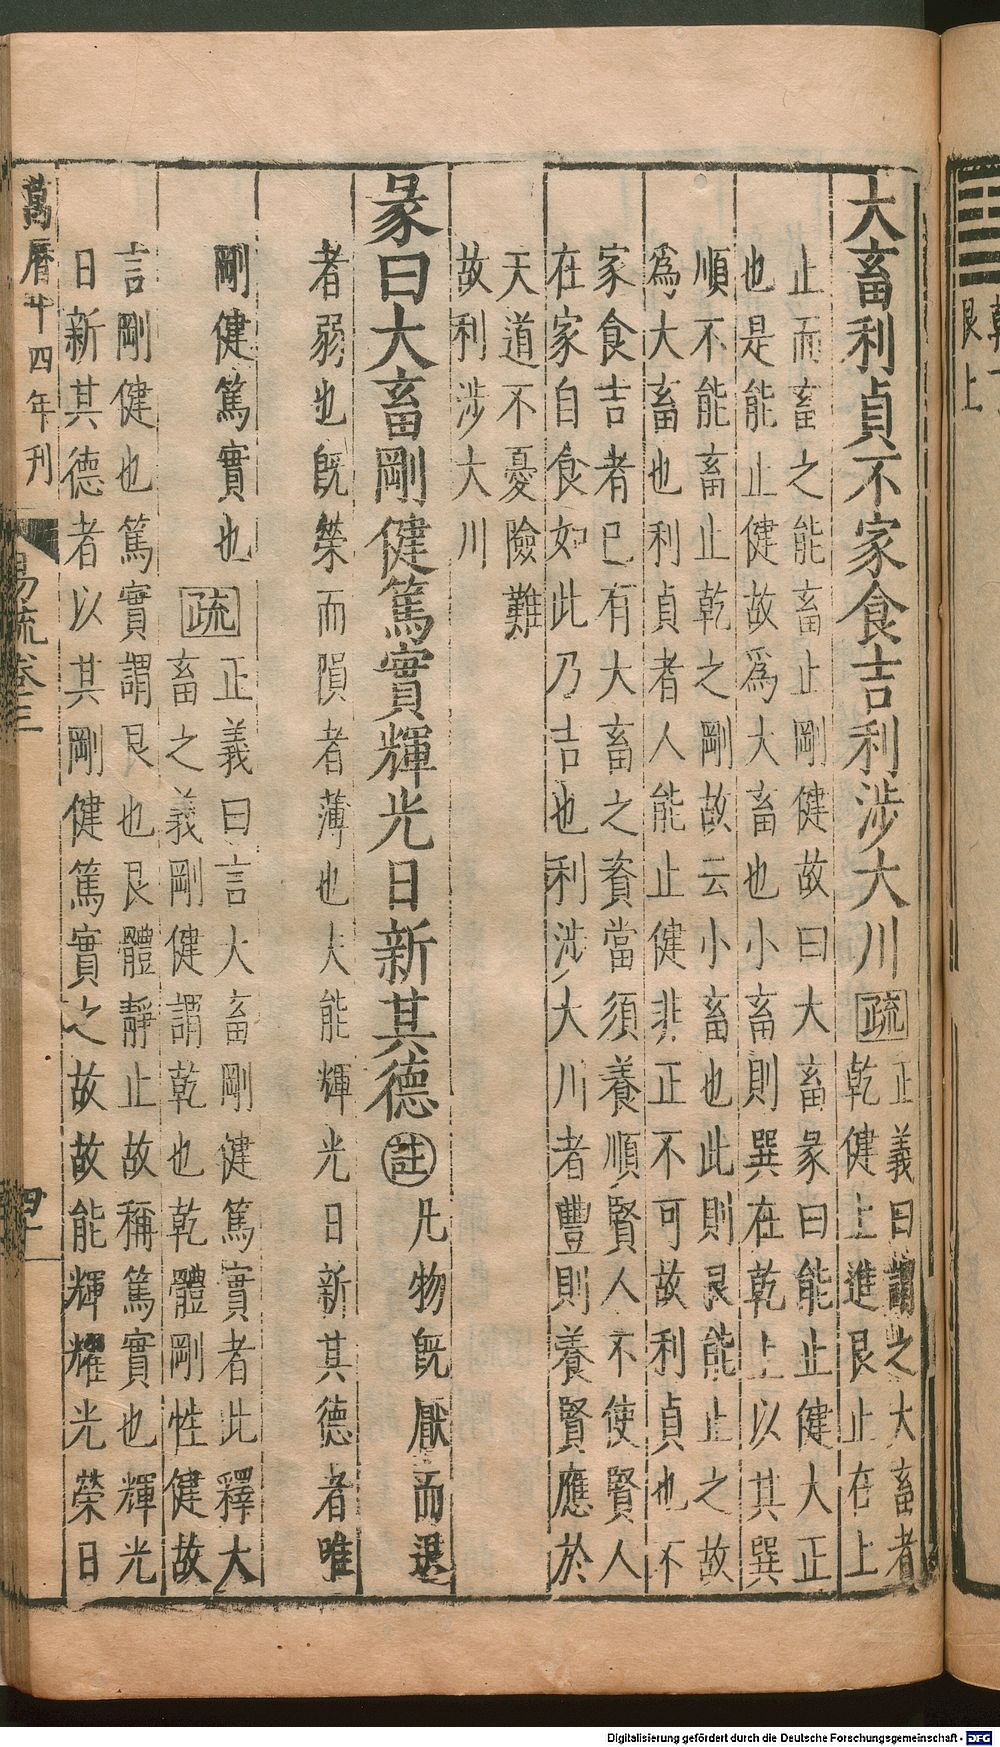 乾下
艮上
大畜利貞不家食吉利涉大川疏
正義曰謂之大畜者
乾健上進艮止在上
止而畜之能畜止剛健故曰大畜彖曰能止健大正
也是能止健故爲大畜也小畜則巽在乾上以其巽
順不能畜止乾之剛故云小畜也此則艮能止之故
爲大畜也利貞者人能止健非正不可故利貞也不
家食吉者已有大畜之資當須養順賢人不使賢人
在家自食如此乃吉也利涉大川者豐則養賢應於
天道不憂險難
故利涉大川
彖曰大畜剛健篤實輝光日新其德註
凡物旣厭而退
者弱也旣榮而隕者薄也夫能輝光日新其德者唯
剛健篤實也
疏
正義曰言大畜剛健篤實者此釋大
畜之義剛健謂乾也乾體剛性健故
言剛健也篤實謂艮也艮體靜止故稱篤實也輝光
日新其德者以其剛健篤實之故故能輝耀光榮日
萬曆十四年刊
易疏卷三
四
Digitalisierung gefördert durch die Deutsche Forschungsgemeinschaft - DFG